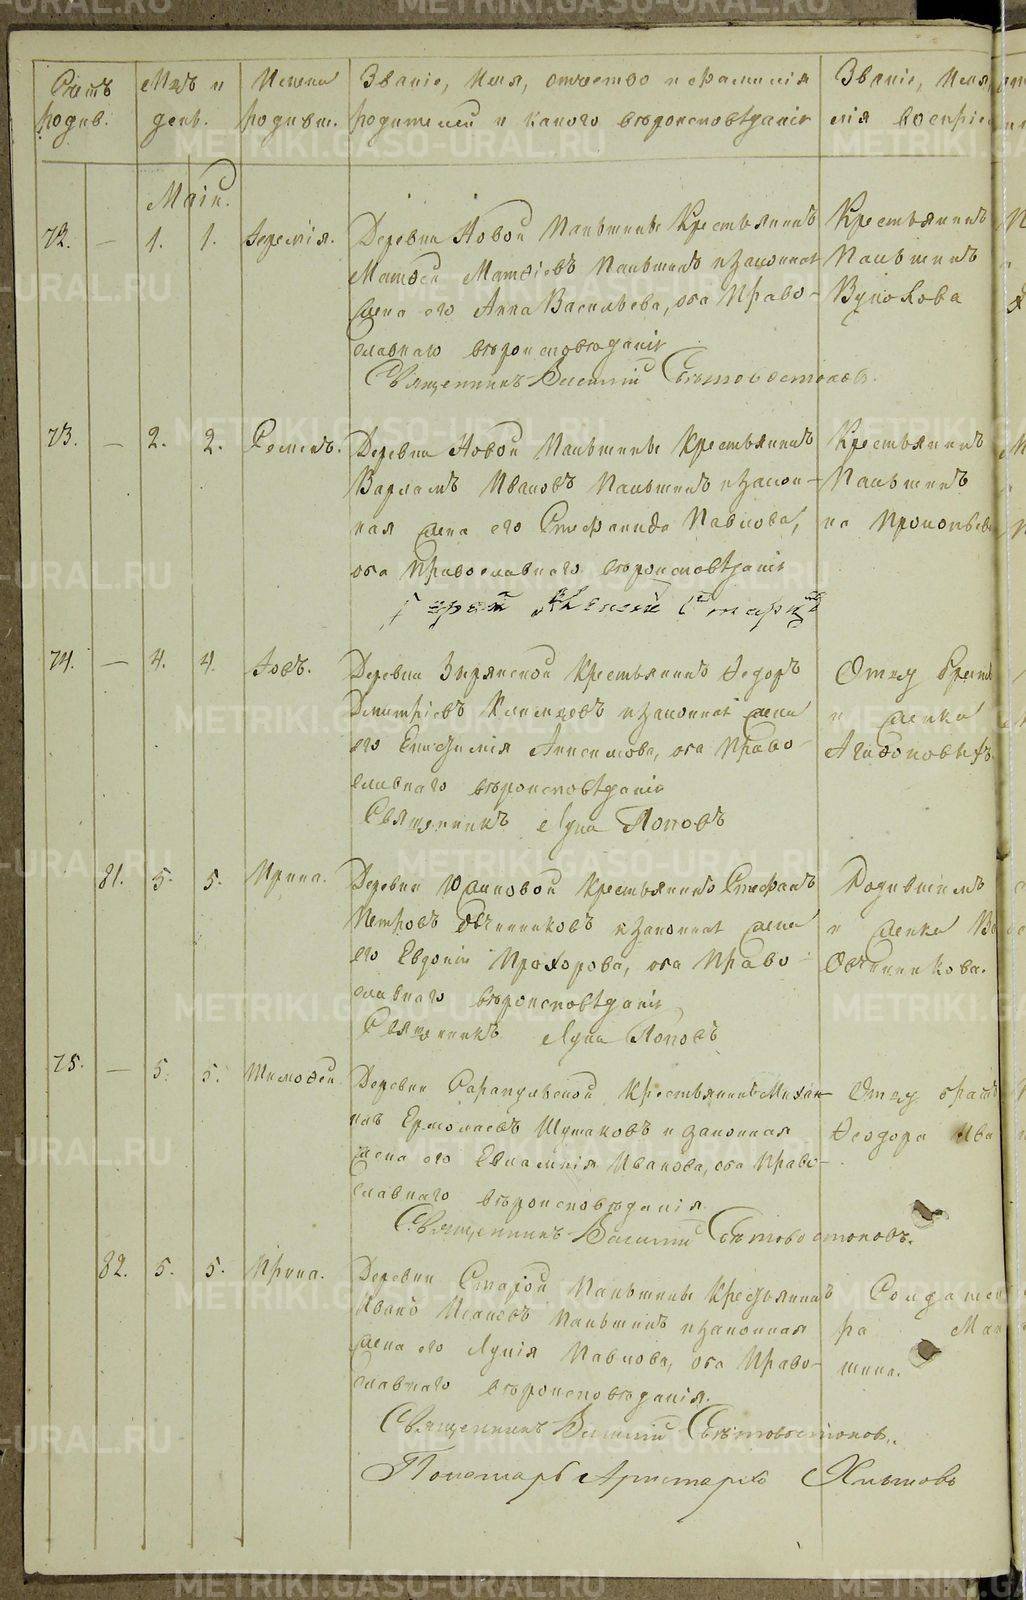 Счетъ родив.
Мцъ и день.
Имена родивш.
Званіе, Имя, отчество и фамилія
родителей и какого вѣроисповѣданія
Званіе, Имя,
милія воспріем
Маій.
72. — 1. 1. Іеремія.
Деревни Новой Паньшины Крестьянинъ
Матѳей Матѳіевъ Паньшинъ и законная
жена его Анна Васильева, оба Право-
славнаго вѣроисповѣданія
Священникъ Василій Свѣтовостоковъ.
Крестьянинъ
Паньшинъ
Вуколова
73. — 2. 2. Романъ.
Деревни Новой Паньшины Крестьянинъ
Варламъ Ивановъ Паньшинъ и закон-
ная жена его Стефанида Павлова,
оба Православнаго вѣроисповѣданія
Іерей Алексій
Крестьянинъ
Паньшинъ
на Прокопьева
74. — 4. 4. Іовъ.
Деревни Зырянской Крестьянинъ Ѳедоръ
Димитріевъ и законная жена
его Епифимія Анисимова, оба Право-
славнаго вѣроисповѣданія
Священникъ Лука Поповъ
Отцу братъ
и женка
Агафоновыхъ
81. 5. 5. Ирина.
Деревни Крестьянинъ Стефанъ
Петровъ Овчинниковъ и законная жена
его Евдокія Прохорова, оба Право-
славнаго вѣроисповѣданія
Священникъ Лука Поповъ
Родившимъ
и женка
Овчинникова.
75. — 5. 5. Тимоѳей
Деревни Сарапульской Крестьянинъ Михаи-
лъ Ермолаевъ Шумаковъ и законная
жена его Евлампія Иванова, оба Право-
славнаго вѣроисповѣданія
Священникъ Василій Свѣтовостоковъ.
Отцу братъ
Ѳеодора Ива
82. 5. 5. Ирина.
Деревни Старой Паньшины Крестьянинъ
Иванъ Исаковъ Паньшинъ и законная
жена его Лукія Павлова, оба Право-
славнаго вѣроисповѣданія.
Священникъ Василій Свѣтовостоковъ.
Пономарь Аристархъ Хлытовъ
Солдатск
ра Мак
шина.
METRIKI.GASO-URAL.RU